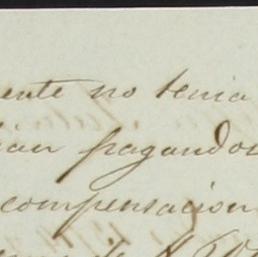 ente no tenia
ian pagandos
compensacion